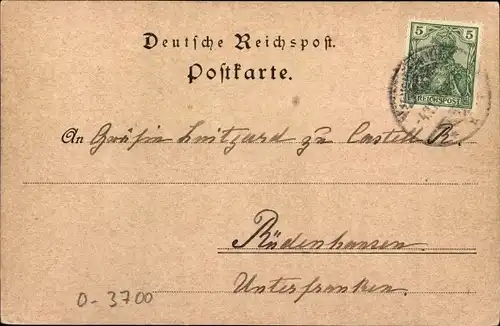 Deutsche Reichspost.
Postkarte.
5 5
REICHSPOST
An Gräfin Luitgard zu Castell R.
Rüdenhausen.
Unterfranken.
D-3700